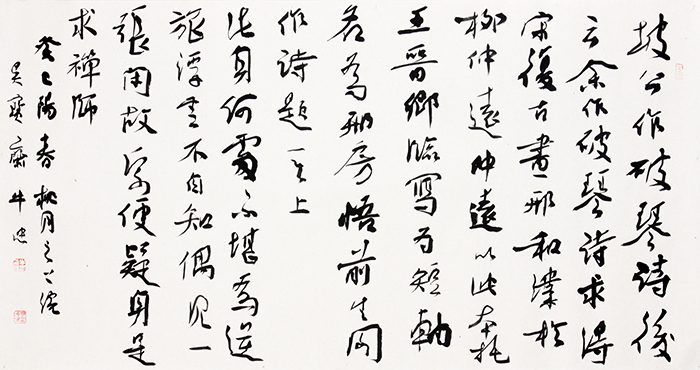 坡公作破琴詩後
云余作破琴詩求得
宋復古畫邢和璞於
柳仲遠仲遠以此本托
王晉卿臨寫為短軸
名為邢房悟前生圖
作詩題其上
此身何處不堪為逆
旅雲不自知偶見一
張閑故紙便疑身是
求禪師
癸巳陽春桃月之上浣
齋牛忠